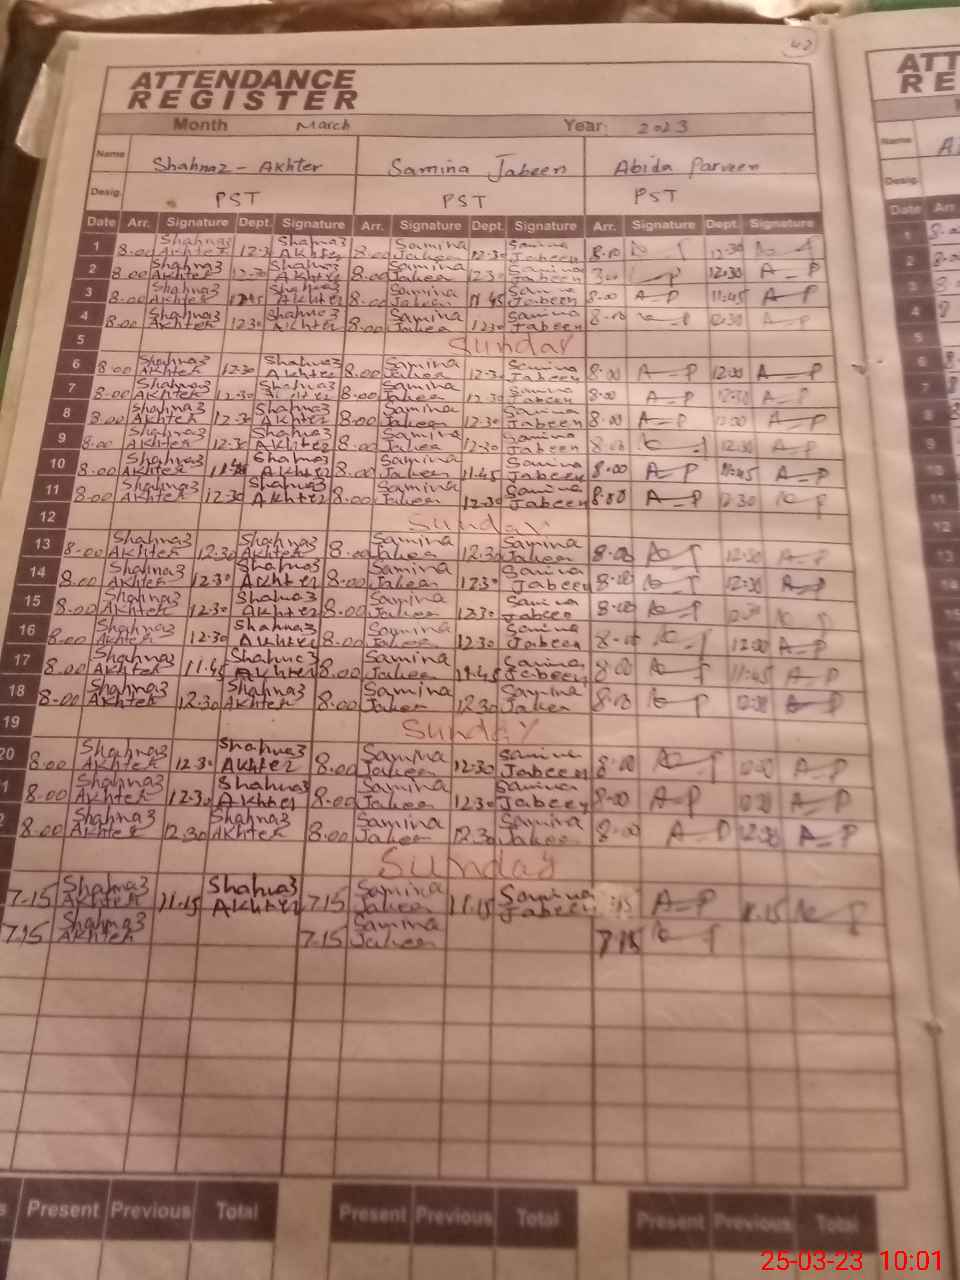 42
ATTENDANCE ATT
REGISTER RE
Month March Year: 2023
Name Shahnaz - Akhter Samina Jabeen Abida Parveen
Desig. PST PST PST Desig.
Date Arr. Signature Dept. Signature Arr. Signature Dept. Signature Arr. Signature Dept. Signature Date Arr
1 8.00 Shahnaz Akhter 12.30 Shahnaz Akhter 8.00 Samina Jabeen 12.30 Samina Jabeen 8.00 12.30
2 8.00 Shahnaz Akhter 12.30 Shahnaz Akhter 8.00 Samina Jabeen 12.30 Samina Jabeen 12:30 A-P
3 8.00 Shahnaz Akhter 11.45 Shahnaz Akhter 8.00 Samina Jabeen 11.45 Samina Jabeen 8.00 A-P 11:45 A-P
4 8.00 Shahnaz Akhter 12.30 Shahnaz Akhter 8.00 Samina Jabeen 12.30 Samina Jabeen 8.00 12:30 A-P
5 Sunday
6 8.00 Shahnaz Akhter 12.30 Shahnaz Akhter 8.00 Samina Jabeen 12.30 Samina Jabeen 8.00 A-P A-P
7 8.00 Shahnaz Akhter 12.30 Shahnaz Akhter 8.00 Samina Jabeen 12.30 Samina Jabeen 8.00 A-P 12:30 A-P
8 8.00 Shahnaz Akhter 12.30 Shahnaz Akhter 8.00 Samina Jabeen 12.30 Samina Jabeen 8.00 A-P A-P
9 8.00 Shahnaz Akhter 12.30 Shahnaz Akhter 8.00 Samina Jabeen 12.30 Samina Jabeen 12:30 A-P
10 8.00 Shahnaz Akhter 11.45 Shahnaz Akhter 8.00 Samina Jabeen 11.45 Samina Jabeen 8.00 A-P 11:45 A-P
11 8.00 Shahnaz Akhter 12.30 Shahnaz Akhter 8.00 Samina Jabeen 12.30 Samina Jabeen 8.00 A-P 12:30
12 Sunday
13 8.00 Shahnaz Akhter 12.30 Shahnaz Akhter 8.00 Samina Jabeen 12.30 Samina Jabeen 8.00 12:30 A-P
14 8.00 Shahnaz Akhter 12.30 Shahnaz Akhter 8.00 Samina Jabeen 12.30 Samina Jabeen 8.00 12:30 A-P
15 8.00 Shahnaz Akhter 12.30 Shahnaz Akhter 8.00 Samina Jabeen 12.30 Samina Jabeen 8.00 12:30
16 8.00 Shahnaz Akhter 12.30 Shahnaz Akhter 8.00 Samina Jabeen 12.30 Samina Jabeen A-P
17 8.00 Shahnaz Akhter 11.45 Shahnaz Akhter 8.00 Samina Jabeen 11.45 Samina Jabeen 8.00 11:45 A-P
18 8.00 Shahnaz Akhter 12.30 Shahnaz Akhter 8.00 Samina Jabeen 12.30 Samina Jabeen 8.00 A-P
19 Sunday
20 8.00 Shahnaz Akhter 12.30 Shahnaz Akhter 8.00 Samina Jabeen 12.30 Samina Jabeen 8.00 A-P
8.00 Shahnaz Akhter 12.30 Shahnaz Akhter 8.00 Samina Jabeen 12.30 Samina Jabeen 8.00 A-P A-P
8.00 Shahnaz Akhter 12.30 Shahnaz Akhter 8.00 Samina Jabeen 12.30 Samina Jabeen 8.00 A-P 12:30 A-P
Sunday
7.15 Shahnaz Akhter 11.15 Shahnaz Akhter 7.15 Samina Jabeen 11.15 Samina Jabeen A-P 11.15
7.15 Shahnaz Akhter 7.15 Samina Jabeen 7.15
Present Previous Total Present Previous Total Present Previous Total
25-03-23 10:01